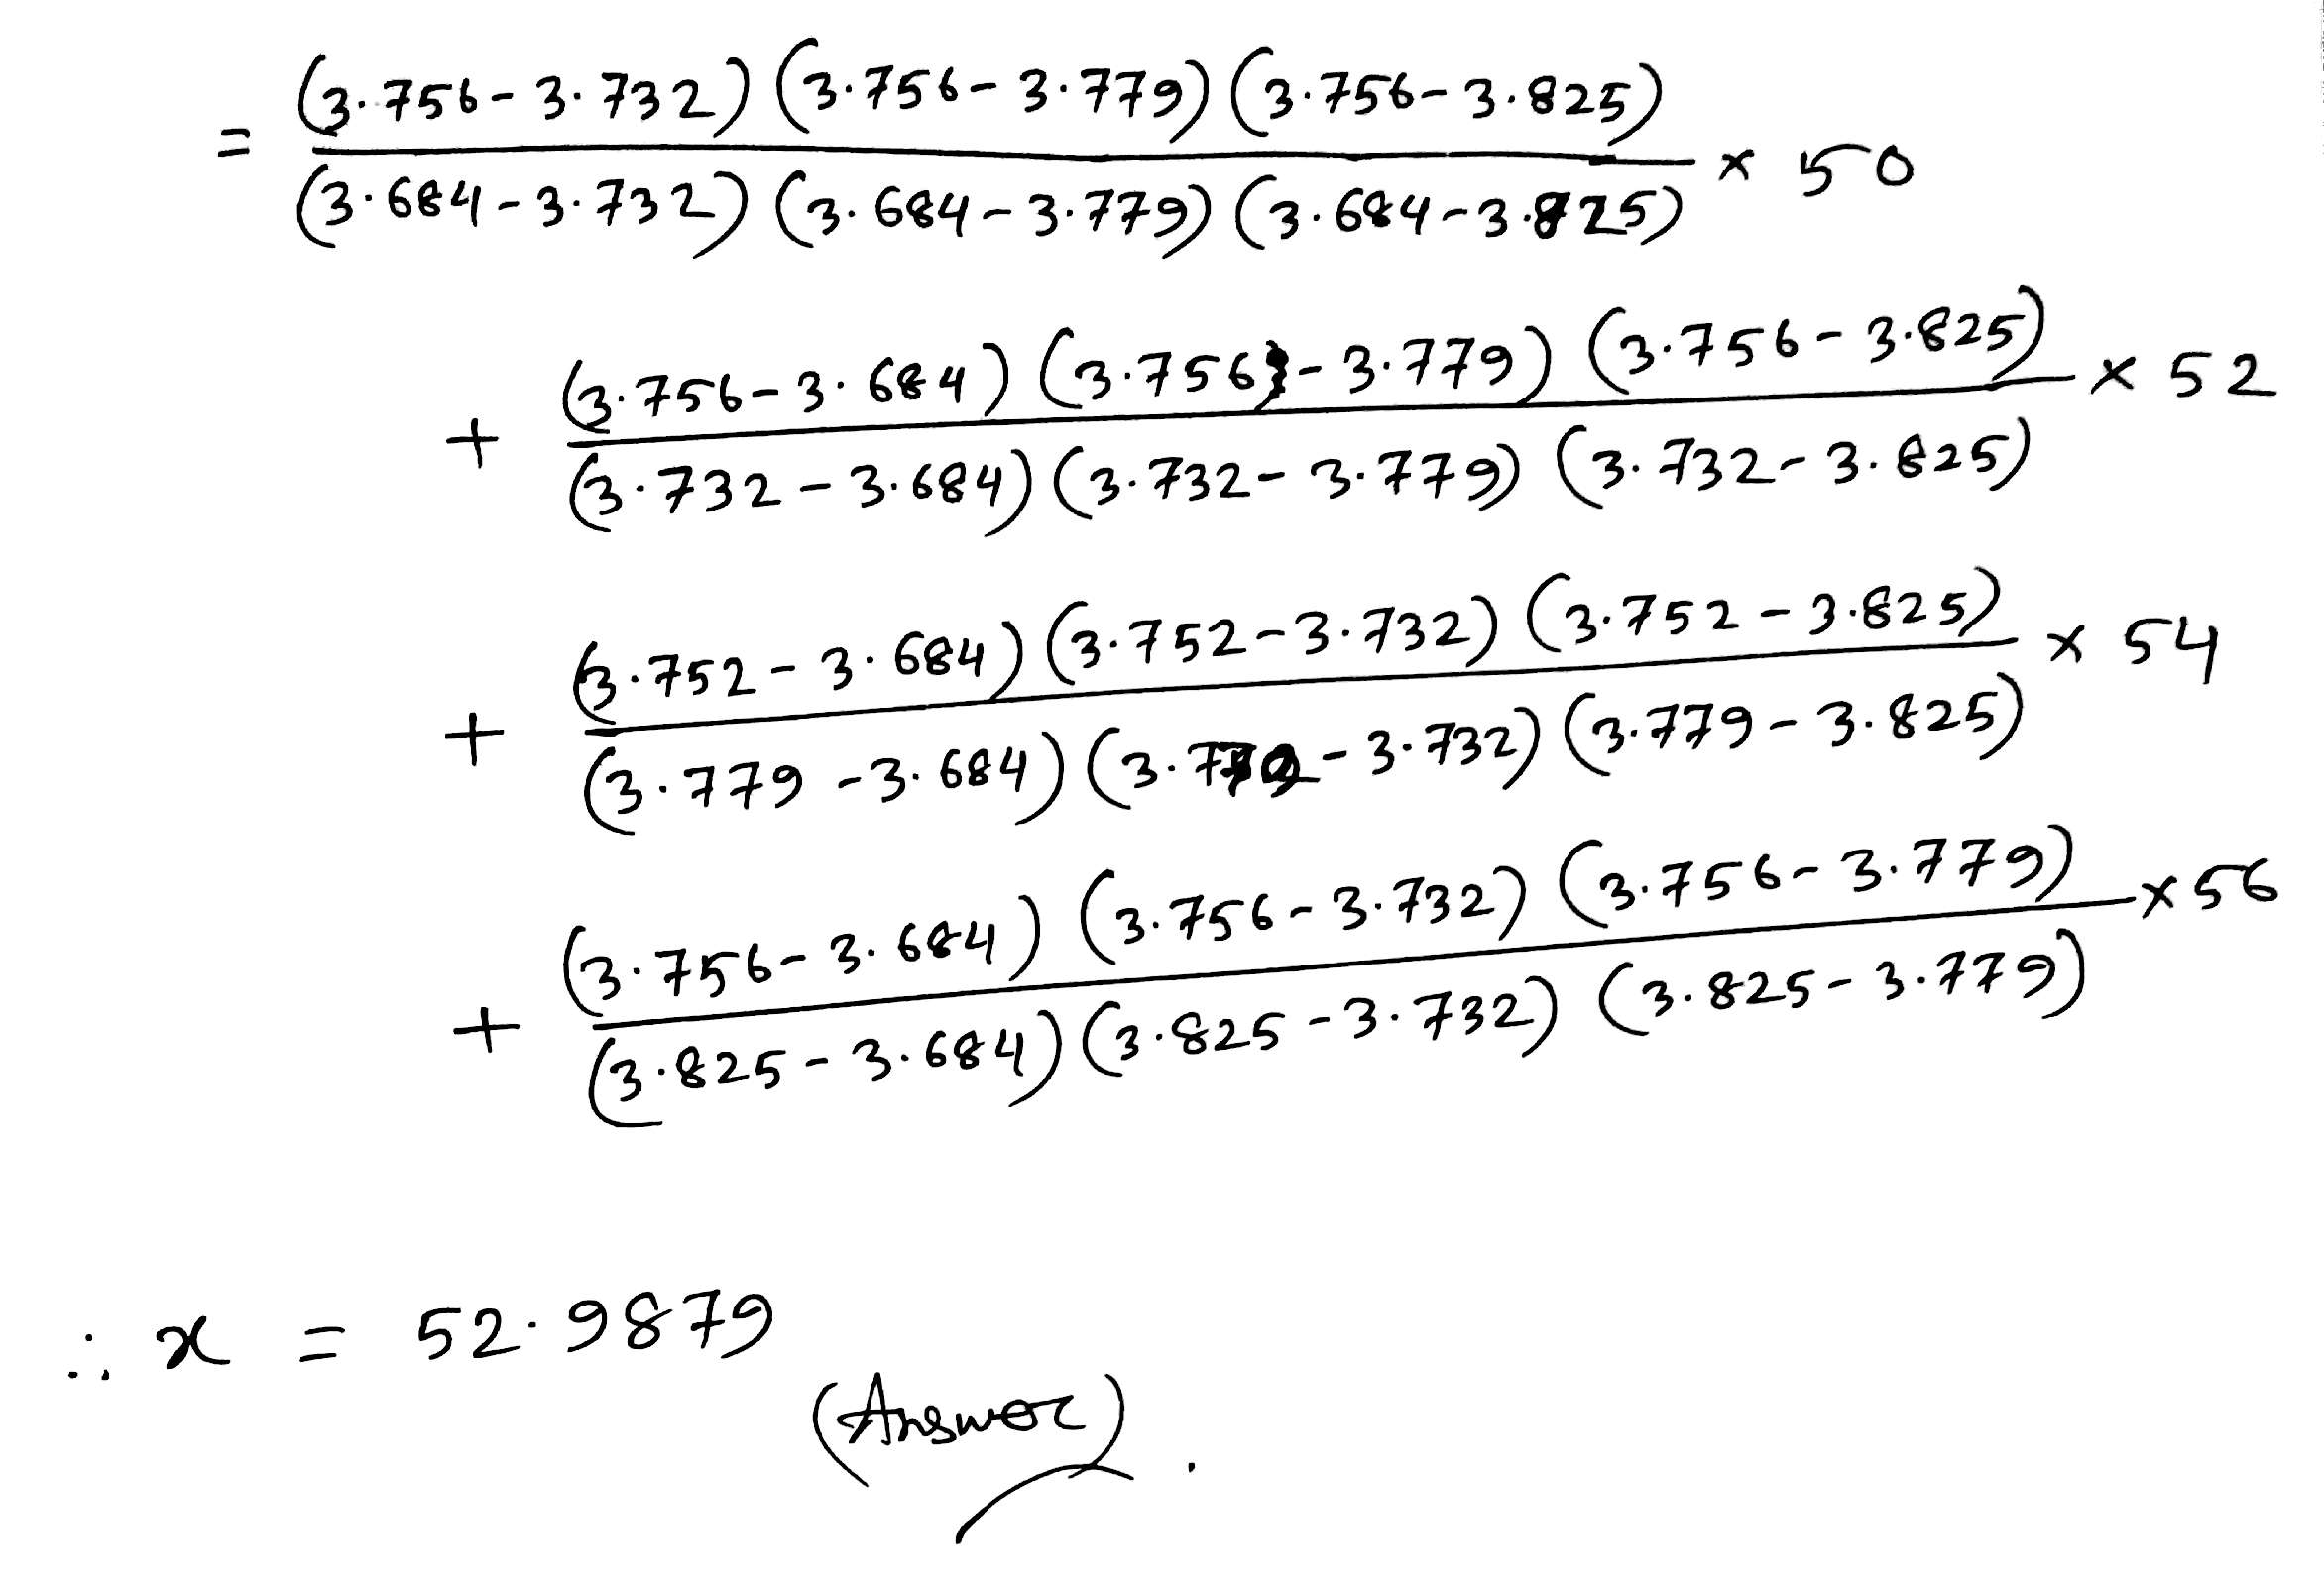 = (3.756-3.732) (3.756-3.779) (3.756-3.825)
(3.684-3.732) (3.684-3.779) (3.684-3.825) × 50
(3.756-3.684) (3.756-3.779) (3.756-3.825)
+ (3.732-3.684) (3.732-3.779) (3.732-3.825) × 52
(3.752-3.684) (3.752-3.732) (3.752-3.825)
+ (3.779-3.684) (3.779-3.732) (3.779-3.825) × 54
(3.756-3.684) (3.756-3.732) (3.756-3.779)
+ (3.825-3.684) (3.825-3.732) (3.825-3.779) × 56
∴ x = 52.9879
(Answer).